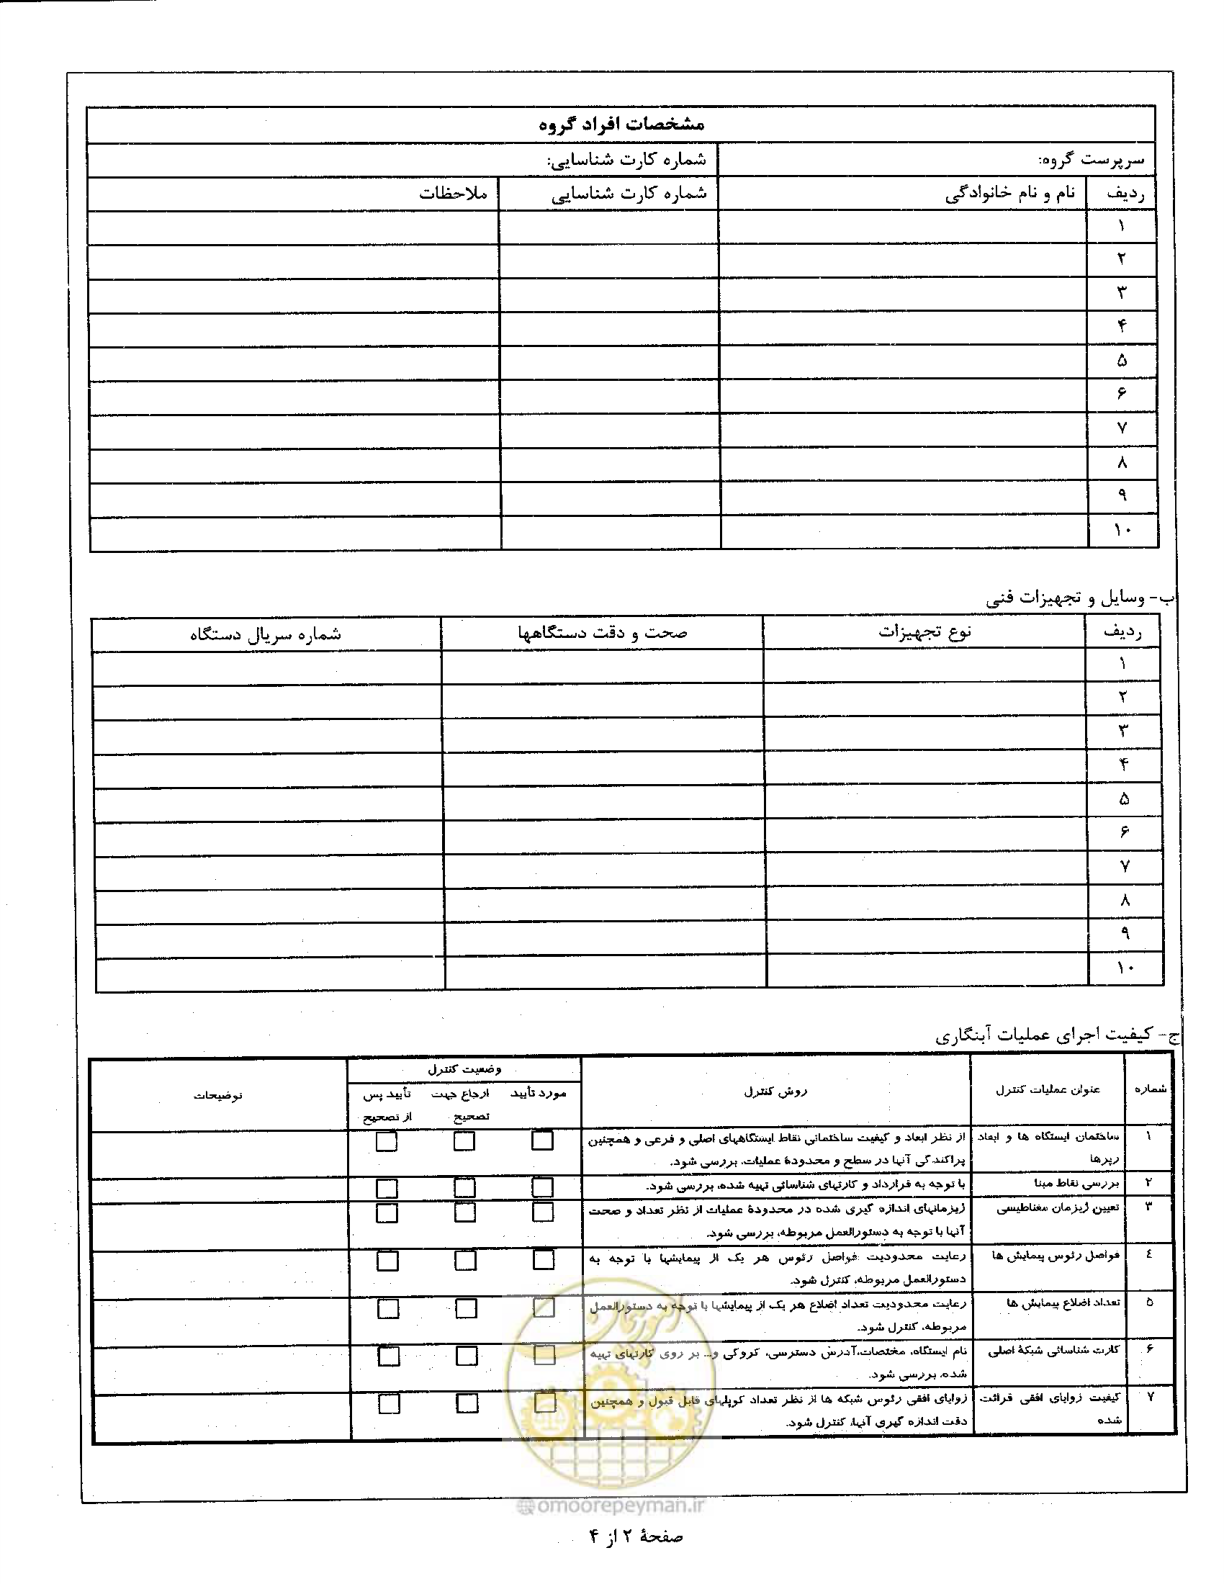 مشخصات افراد گروه
سرپرست گروه: شماره کارت شناسایی:
ردیف نام و نام خانوادگی شماره کارت شناسایی ملاحظات
۱
۲
۳
۴
۵
۶
۷
۸
۹
۱۰
ب- وسایل و تجهیزات فنی
ردیف نوع تجهیزات صحت و دقت دستگاهها شماره سریال دستگاه
۱
۲
۳
۴
۵
۶
۷
۸
۹
۱۰
ج- کیفیت اجرای عملیات آبنگاری
شماره عنوان عملیات کنترل روش کنترل وضعیت کنترل توضیحات
مورد تأیید ارجاع جهت تأیید پس
تصحیح از تصحیح
۱ ساختمان ایستگاه ها و ابعاد از نظر ابعاد و کیفیت ساختمانی نقاط ایستگاههای اصلی و فرعی و همچنین
رپرها پراکندگی آنها در سطح و محدودهٔ عملیات، بررسی شود.
۲ بررسی نقاط مبنا با توجه به قرارداد و کارتهای شناسائی تهیه شده، بررسی شود.
۳ تعیین ژیزمان مغناطیسی ژیزمانهای اندازه گیری شده در محدودهٔ عملیات از نظر تعداد و صحت
آنها با توجه به دستورالعمل مربوطه، بررسی شود.
٤ فواصل رئوس پیمایش ها رعایت محدودیت فواصل رئوس هر یک از پیمایشها با توجه به
دستورالعمل مربوطه، کنترل شود.
۵ تعداد اضلاع پیمایش ها رعایت محدودیت تعداد اضلاع هر یک از پیمایشها با توجه به دستورالعمل
مربوطه، کنترل شود.
۶ کارت شناسائی شبکهٔ اصلی نام ایستگاه، مختصات،آدرس دسترسی، کروکی و... بر روی کارتهای تهیه
شده، بررسی شود.
۷ کیفیت زوایای افقی قرائت زوایای افقی رئوس شبکه ها از نظر تعداد کوپلهای قابل قبول و همچنین
شده دقت اندازه گیری آنها، کنترل شود.
امور پیمان
@omoorepeyman.ir
صفحهٔ ۲ از ۴